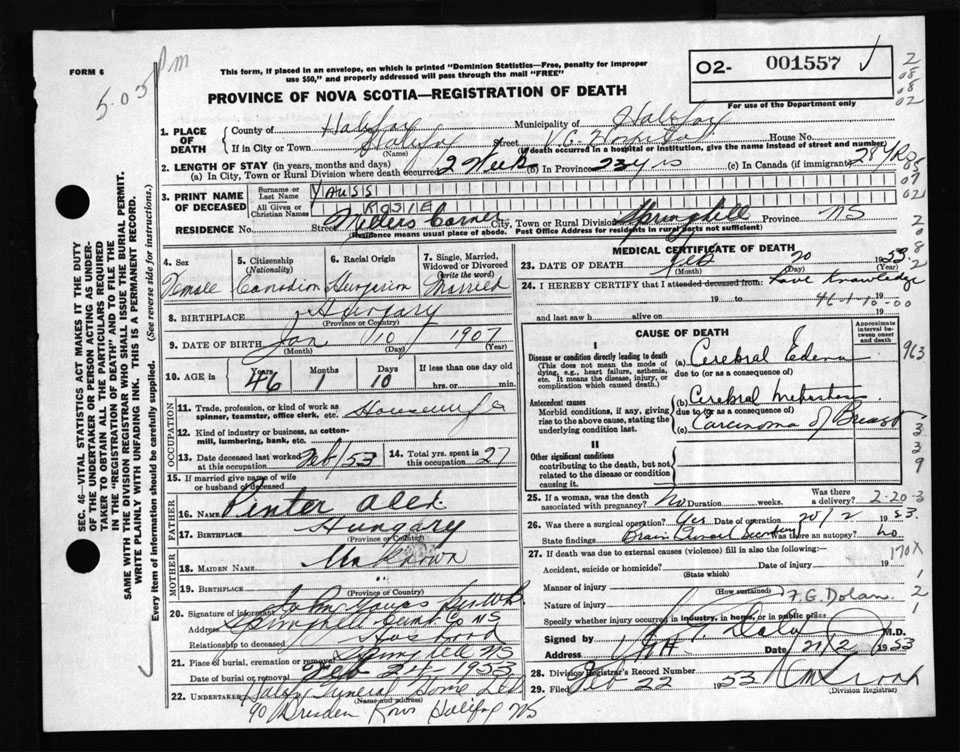 FORM 6
5.05 pm
This form, if placed in an envelope, on which is printed "Dominion Statistics—Free, penalty for improper
use $50," and properly addressed will pass through the mail "FREE"
O2- 001557
PROVINCE OF NOVA SCOTIA—REGISTRATION OF DEATH
For use of the Department only
1. PLACE OF DEATH
County of Halifax Municipality of Halifax
If in City or Town Halifax Street V.G. Hospital House No.
(Name) (If death occurred in a hospital or institution, give the name instead of street and number)
2. LENGTH OF STAY (in years, months and days)
(a) In City, Town or Rural Division where death occurred 2 Weeks (b) In Province 23 yrs (c) In Canada (if immigrant) 28 yrs
3. PRINT NAME OF DECEASED
Surname or Last Name YAUSS
All Given or Christian Names ROSIE
RESIDENCE No. Street Millers Corner City, Town or Rural Division Springhill Province NS
(Residence means usual place of abode. Post Office Address for residents in rural parts not sufficient)
4. Sex Female
5. Citizenship (Nationality) Canadian
6. Racial Origin Hungarian
7. Single, Married, Widowed or Divorced (write the word) Married
8. BIRTHPLACE Hungary
(Province or Country)
9. DATE OF BIRTH Jan 10 1907
(Month) (Day) (Year)
10. AGE in Years 46 Months 1 Days 10 If less than one day old hrs. or min.
OCCUPATION
11. Trade, profession, or kind of work as spinner, teamster, office clerk, etc. Housewife
12. Kind of industry or business, as cotton-mill, lumbering, bank, etc.
13. Date deceased last worked at this occupation Feb/53
14. Total yrs. spent in this occupation 27
15. If married give name of wife or husband of deceased
FATHER
16. NAME Pinter Alex
17. BIRTHPLACE Hungary
(Province or Country)
MOTHER
18. MAIDEN NAME Unknown
19. BIRTHPLACE "
(Province or Country)
20. Signature of informant John
Address Springhill Cumb Co NS
Relationship to deceased Husband
21. Place of burial, cremation or removal Springhill NS
Date of burial or removal Feb 24 1953
22. UNDERTAKER Funeral Home Ltd
(Name and address)
90 Dresden Row Halifax NS
MEDICAL CERTIFICATE OF DEATH
23. DATE OF DEATH Feb 20 1953
(Month) (Day) (Year)
24. I HEREBY CERTIFY that I attended deceased from: have knowledge
19 to 19
46-1-10-00
and last saw h alive on 19
CAUSE OF DEATH
Approximate interval between onset and death
I
Disease or condition directly leading to death
(This does not mean the mode of dying, e.g., heart failure, asthenia, etc. It means the disease, injury, or complication which caused death.)
(a) Cerebral Edema
due to (or as a consequence of)
Antecedent causes
Morbid conditions, if any, giving rise to the above cause, stating the underlying condition last.
(b) Cerebral Metastasis
due to (or as a consequence of)
(c) Carcinoma of Breast
II
Other significant conditions
contributing to the death, but not related to the disease or condition causing it.
25. If a woman, was the death associated with pregnancy? No Duration weeks. Was there a delivery? 2-20-3
26. Was there a surgical operation? Yes Date of operation 20/2 1953.
State findings Brain Was there an autopsy? no
170X
27. If death was due to external causes (violence) fill in also the following:—
Accident, suicide or homicide? Date of injury 19
(State which)
Manner of injury
(How sustained)
Nature of injury F.G. Dolan
Specify whether injury occurred in industry, in home, or in public place
Signed by Daly M.D.
Address VGH Date 21/2 1953
28. Division Registrar's Record Number
29. Filed Feb 22 1953
(Division Registrar)
SEC. 46—VITAL STATISTICS ACT MAKES IT THE DUTY
OF THE UNDERTAKER OR PERSON ACTING AS UNDER-
TAKER TO OBTAIN ALL THE PARTICULARS REQUIRED
IN THE "REGISTRATION OF DEATH" AND TO FILE THE
SAME WITH THE DIVISION REGISTRAR WHO SHALL ISSUE THE BURIAL PERMIT.
WRITE PLAINLY WITH UNFADING INK. THIS IS A PERMANENT RECORD.
Every item of information should be carefully supplied. (See reverse side for instructions.)